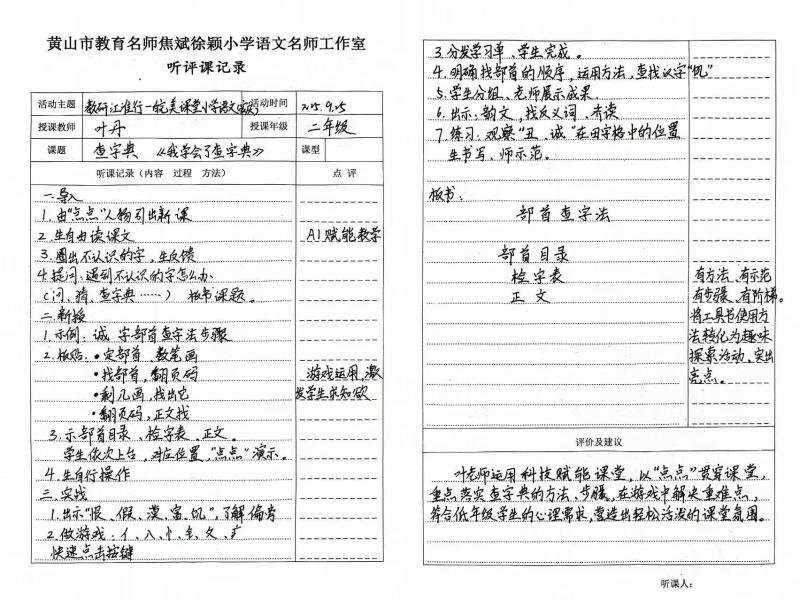 黄山市教育名师焦斌徐颖小学语文名师工作室
听评课记录
活动主题 教研江淮行-皖美课堂小学语文 活动时间 2025.9.25
授课教师 叶丹 授课年级 二年级
课题 查字典 《我学会了查字典》 课型
听课记录（内容 过程 方法） 点 评
一.导入
1.由“点点”人物引出新课
2.生自由读课文 AI赋能教学
3.圈出不认识的字，生反馈
4.提问：遇到不认识的字怎么办
（问、猜、查字典……） 板书课题。
二.新授
1.示例：诚 字部首查字法步骤
2.板贴：•定部首、数笔画
•找部首，翻页码 游戏运用，激
•剩几画，找出它 发学生求知欲
•翻页码，正文找
3.示部首目录、检字表、正文。
学生依次上台，对应位置，“点点”演示。
4.生自行操作
三.实战
1.出示“恨、假、漠、富、饥”，了解偏旁
2.做游戏：亻、入、忄、钅、夂、疒
快速点击按键
3.分发学习单、学生完成。
4.明确找部首的顺序，运用方法，查找认字“饥”
5.学生分组、老师展示成果
6.出示：韵文，找反义词、齐读
7.练习：观察“丑、诚”在田字格中的位置
生书写、师示范。
板书：
部首查字法
部首目录
检字表 有方法、有示范
正文 有步骤、有阶梯。
将工具书使用方
法转化为趣味
探索活动，突出
亮点。
评价及建议
叶老师运用科技赋能课堂，以“点点”贯穿课堂，
重点落实查字典的方法、步骤，在游戏中解决重难点，
符合低年级学生的心理需求，营造出轻松活泼的课堂氛围。
听课人：